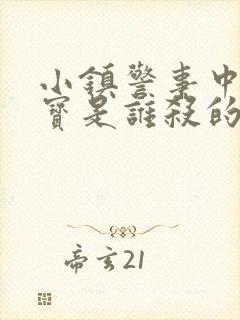 小鎮警事中
寶是誰殺的
帝玄21